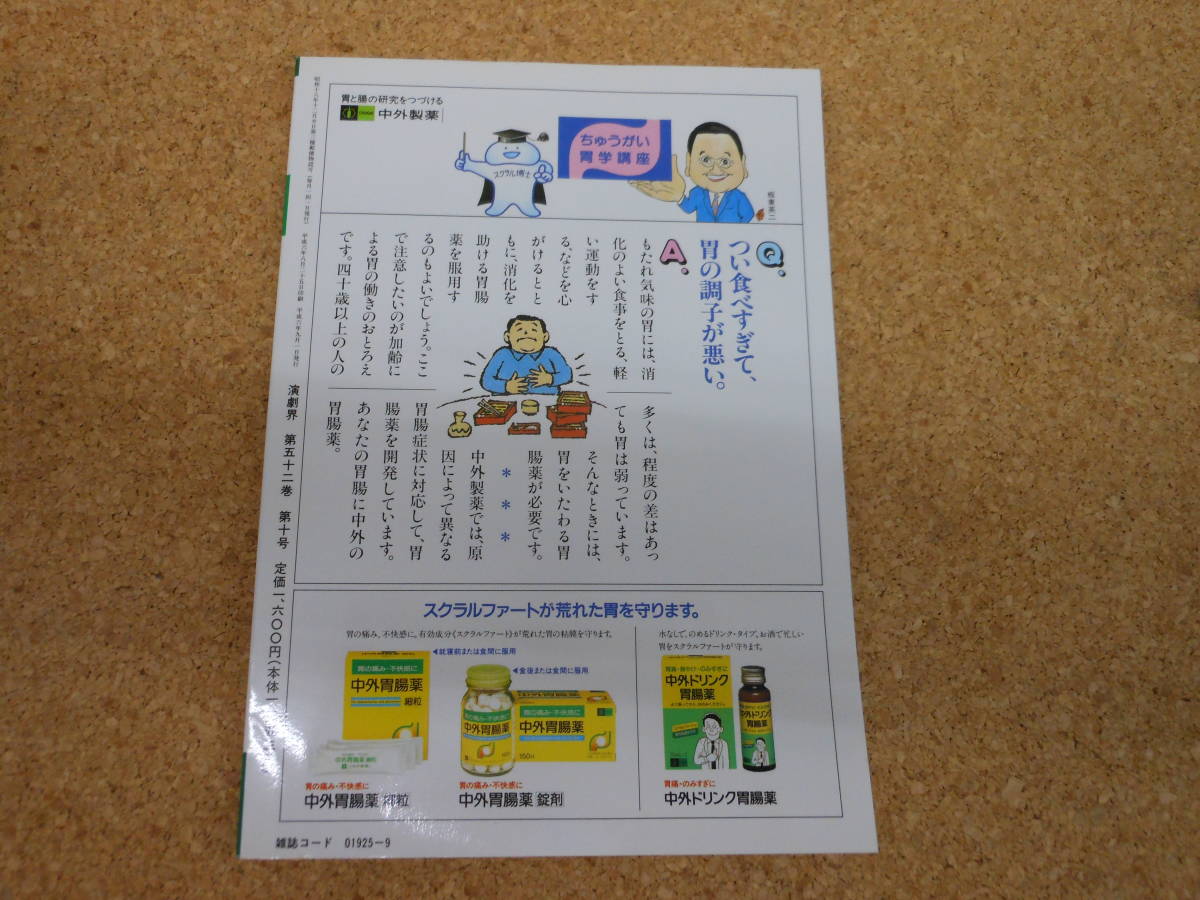 胃と腸の研究をつづける
中外製薬
スクラル博士
ちゅうがい
胃学講座
板東英二
Q.
つい食べすぎて、
胃の調子が悪い。
A.
もたれ気味の胃には、消
化のよい食事をとる、軽
い運動をす
る、などを心
がけるとと
もに、消化を
助ける胃腸
薬を服用す
るのもよいでしょう。ここ
で注意したいのが加齢に
よる胃の働きのおとろえ
です。四十歳以上の人の
多くは、程度の差はあっ
ても胃は弱っています。
そんなときには、
胃をいたわる胃
腸薬が必要です。
＊ ＊ ＊
中外製薬では、原
因によって異なる
胃腸症状に対応して、胃
腸薬を開発しています。
あなたの胃腸に中外の
胃腸薬。
スクラルファートが荒れた胃を守ります。
胃の痛み、不快感に。有効成分《スクラルファート》が荒れた胃の粘膜を守ります。
◀就寝前または食間に服用
◀食後または食間に服用
胃の痛み・不快感に
中外胃腸薬
細粒
胃の痛み・不快感に
中外胃腸薬
胃の痛み・不快感に
中外胃腸薬
150錠
胃の痛み・不快感に
中外胃腸薬 細粒
胃の痛み・不快感に
中外胃腸薬 錠剤
水なしで、のめるドリンク・タイプ。お酒で忙しい
胃をスクラルファートが守ります。
胃痛・胸やけ・のみすぎに
中外ドリンク
胃腸薬
中外ドリンク
胃腸薬
胃痛・のみすぎに
中外ドリンク胃腸薬
平成六年八月二十五日印刷 平成六年九月一日発行
演劇界 第五十二巻 第十号 定価一、六〇〇円(本体一
雑誌コード 01925-9